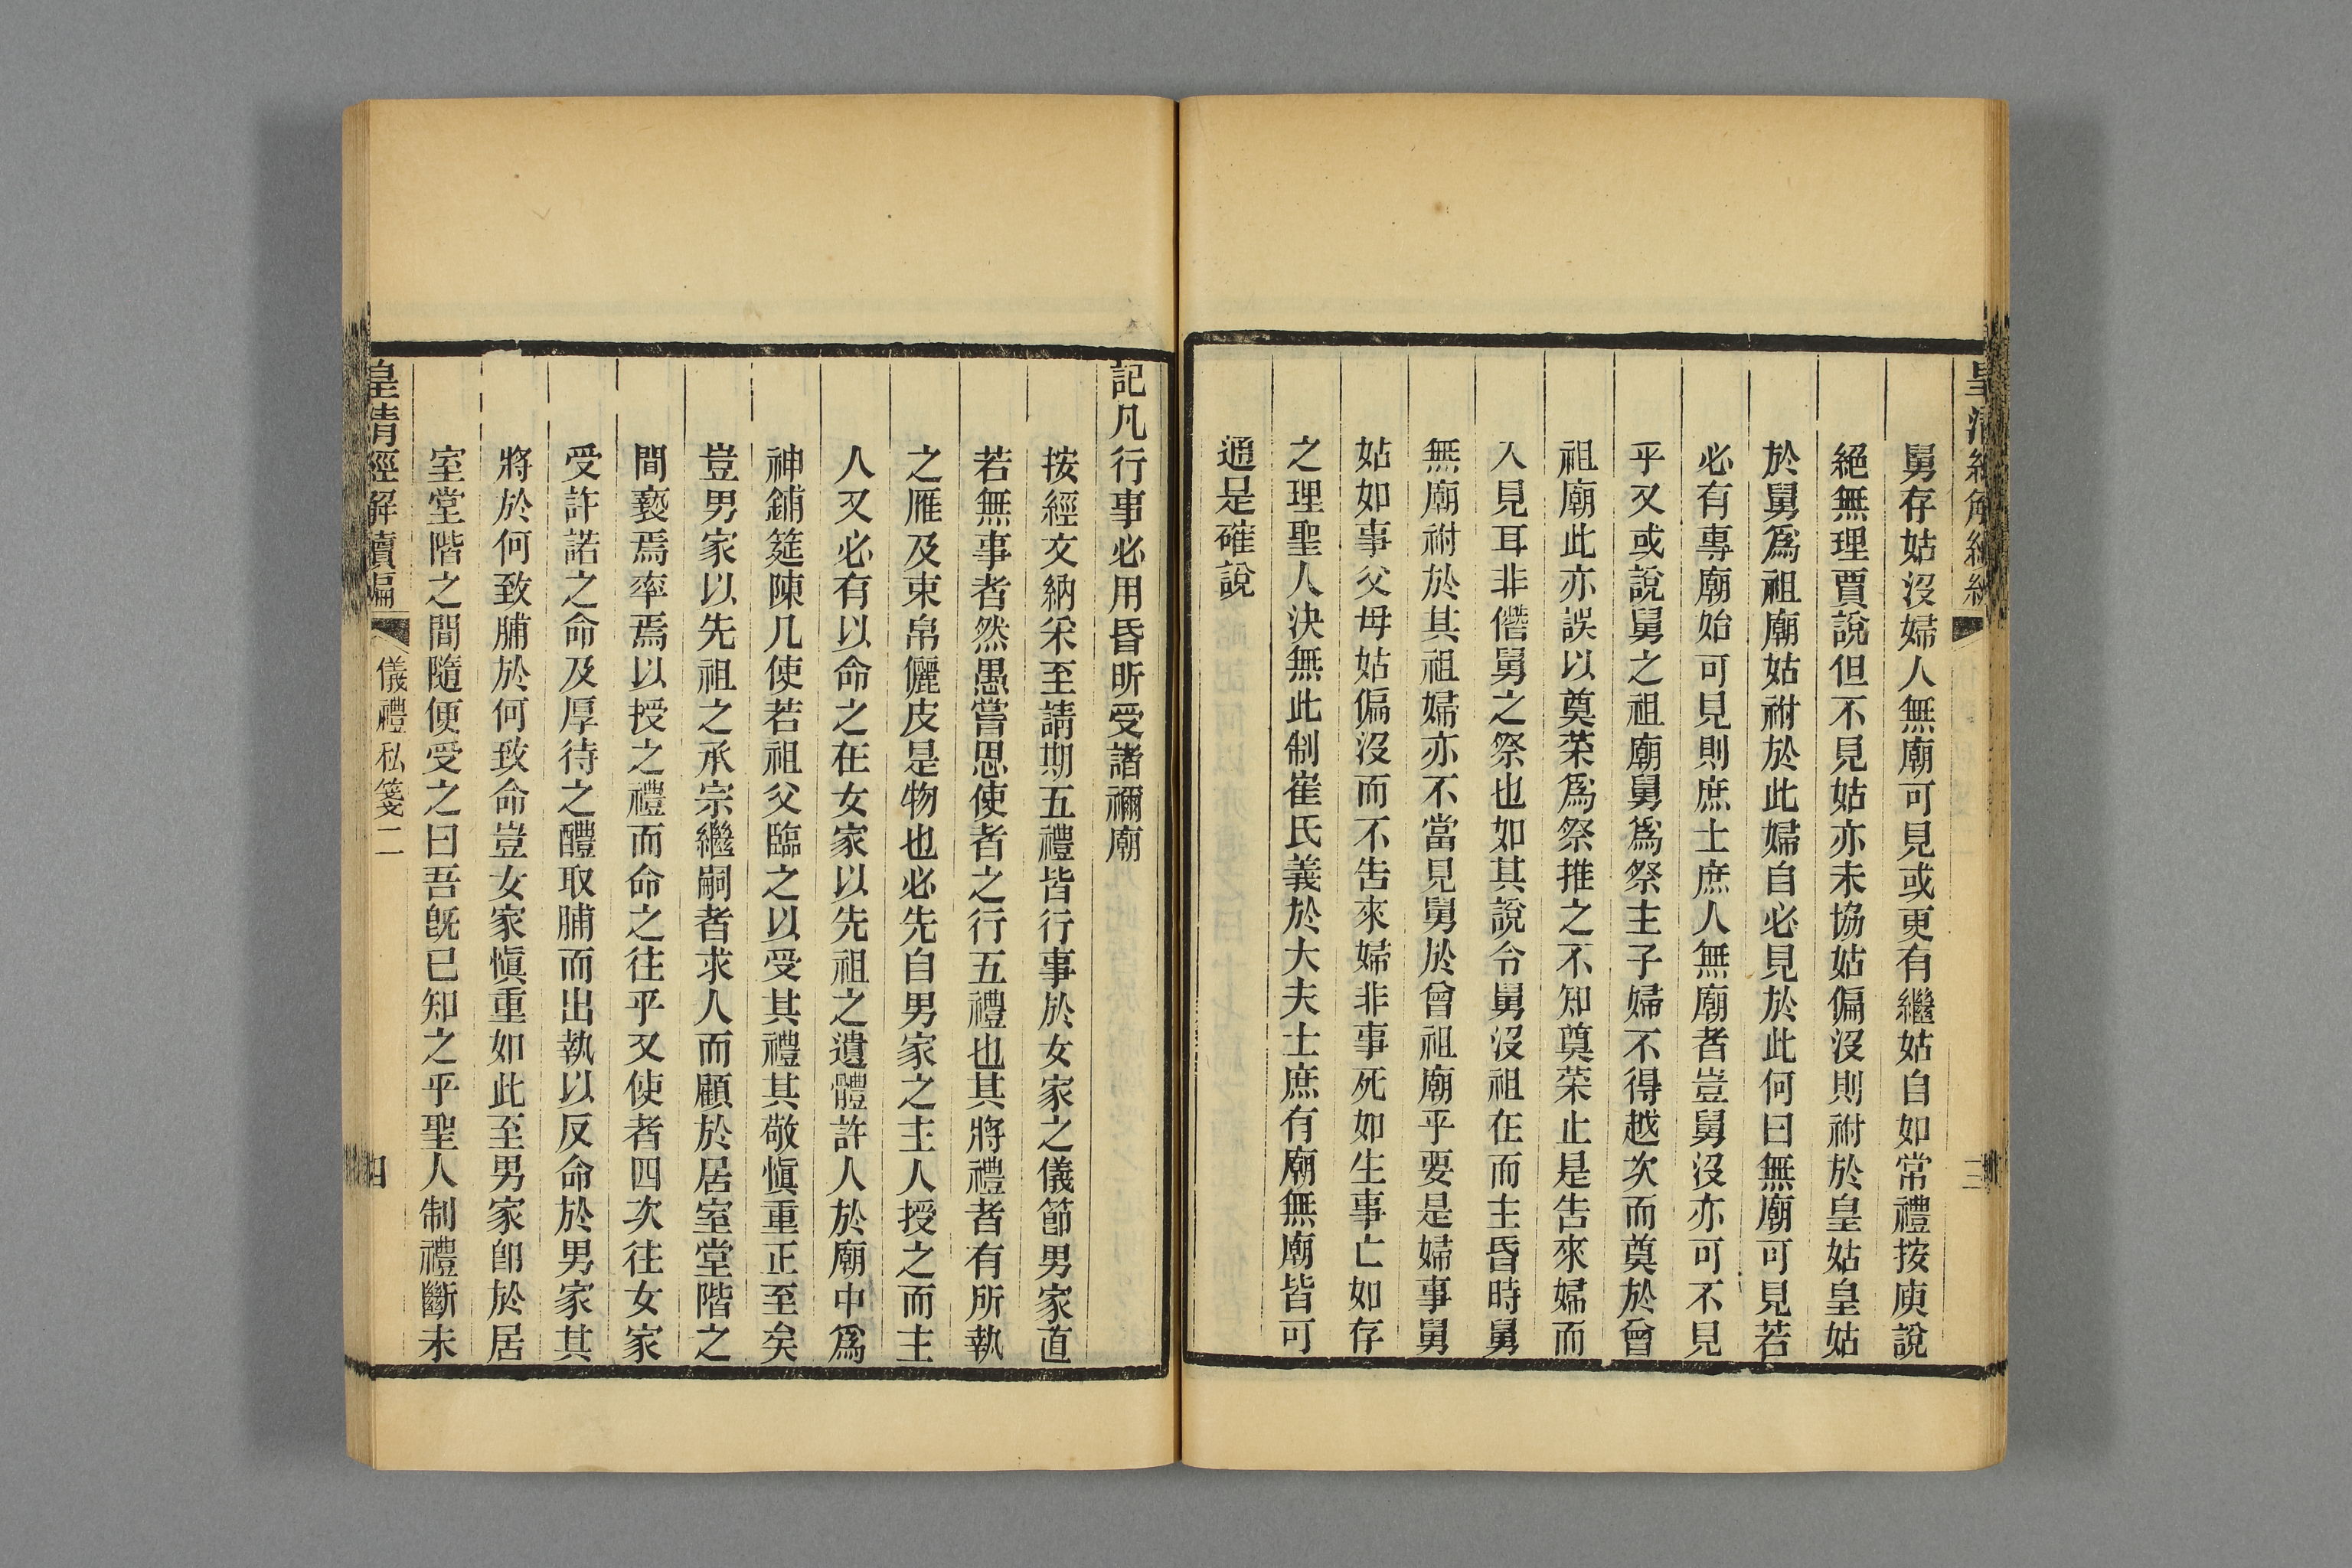 皇清經解續編
三
舅存姑沒婦人無廟可見或更有繼姑自如常禮按庾說
絕無理賈說但不見姑亦未協姑偏沒則祔於皇姑皇姑
於舅爲祖廟姑祔於此婦自必見於此何曰無廟可見若
必有專廟始可見則庶士庶人無廟者豈舅沒亦可不見
乎又或說舅之祖廟舅爲祭主子婦不得越次而奠於曾
祖廟此亦誤以奠菜爲祭推之不知奠菜止是告來婦而
入見耳非僭舅之祭也如其說令舅沒祖在而主昏時舅
無廟祔於其祖婦亦不當見舅於曾祖廟乎要是婦事舅
姑如事父母姑偏沒而不告來婦非事死如生事亡如存
之理聖人決無此制崔氏義於大夫士庶有廟無廟皆可
通是確說
記凡行事必用昏昕受諸禰廟
按經文納采至請期五禮皆行事於女家之儀節男家直
若無事者然愚嘗思使者之行五禮也其將禮者有所執
之雁及束帛儷皮是物也必先自男家之主人授之而主
人又必有以命之在女家以先祖之遺體許人於廟中爲
神鋪筵陳几使若祖父臨之以受其禮其敬愼重正至矣
豈男家以先祖之承宗繼嗣者求人而顧於居室堂階之
間褻焉率焉以授之禮而命之往乎又使者四次往女家
受許諾之命及厚待之醴取脯而出執以反命於男家其
將於何致脯於何致命豈女家愼重如此至男家卽於居
室堂階之間隨便受之曰吾旣已知之乎聖人制禮斷未
皇清經解續編
儀禮私箋二
四